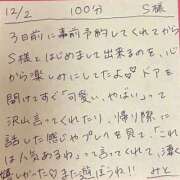 12/2 100分 S様
3日前に事前予約してくれてから
S様とはじめまして出来るのを、心
から楽しみにしてたよ♡ドアを
開けてすぐ「可愛い、やばい」って
沢山言ってくれたり、帰り際に
話した感じやプレイを見て、「これ
は人気あるわ」って言ってくれて、凄く
嬉しかった また遊ぼうね!! みと